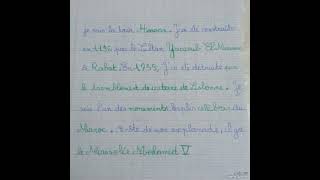 je suis la tour Hassan. J'ai été construite
en 1196 par le Sultan Yacoub El Mansour
à Rabat. En 1755, J'ai été détruite par
le tremblement de terre de Lisbonne. Je
suis l'un des monuments les plus célèbres du
Maroc. à côté de mon esplanade, il y a
le Mausolée Mohamed V